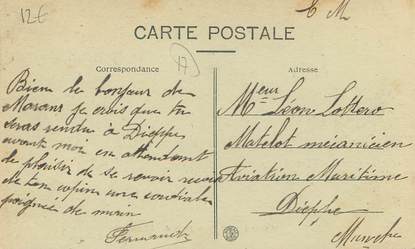 12€
F M
CARTE POSTALE
17
Correspondance
Adresse
Bien le bonjour de
Marans je crois que tu
seras rendu à Dieppe
avant moi en attendant
le plaisir de se revoir
de ton copain une cordiale
poignée de main
Fernand
Meur Léon Lottero
Matelot mécanicien
Aviation Maritime
Dieppe
Manche